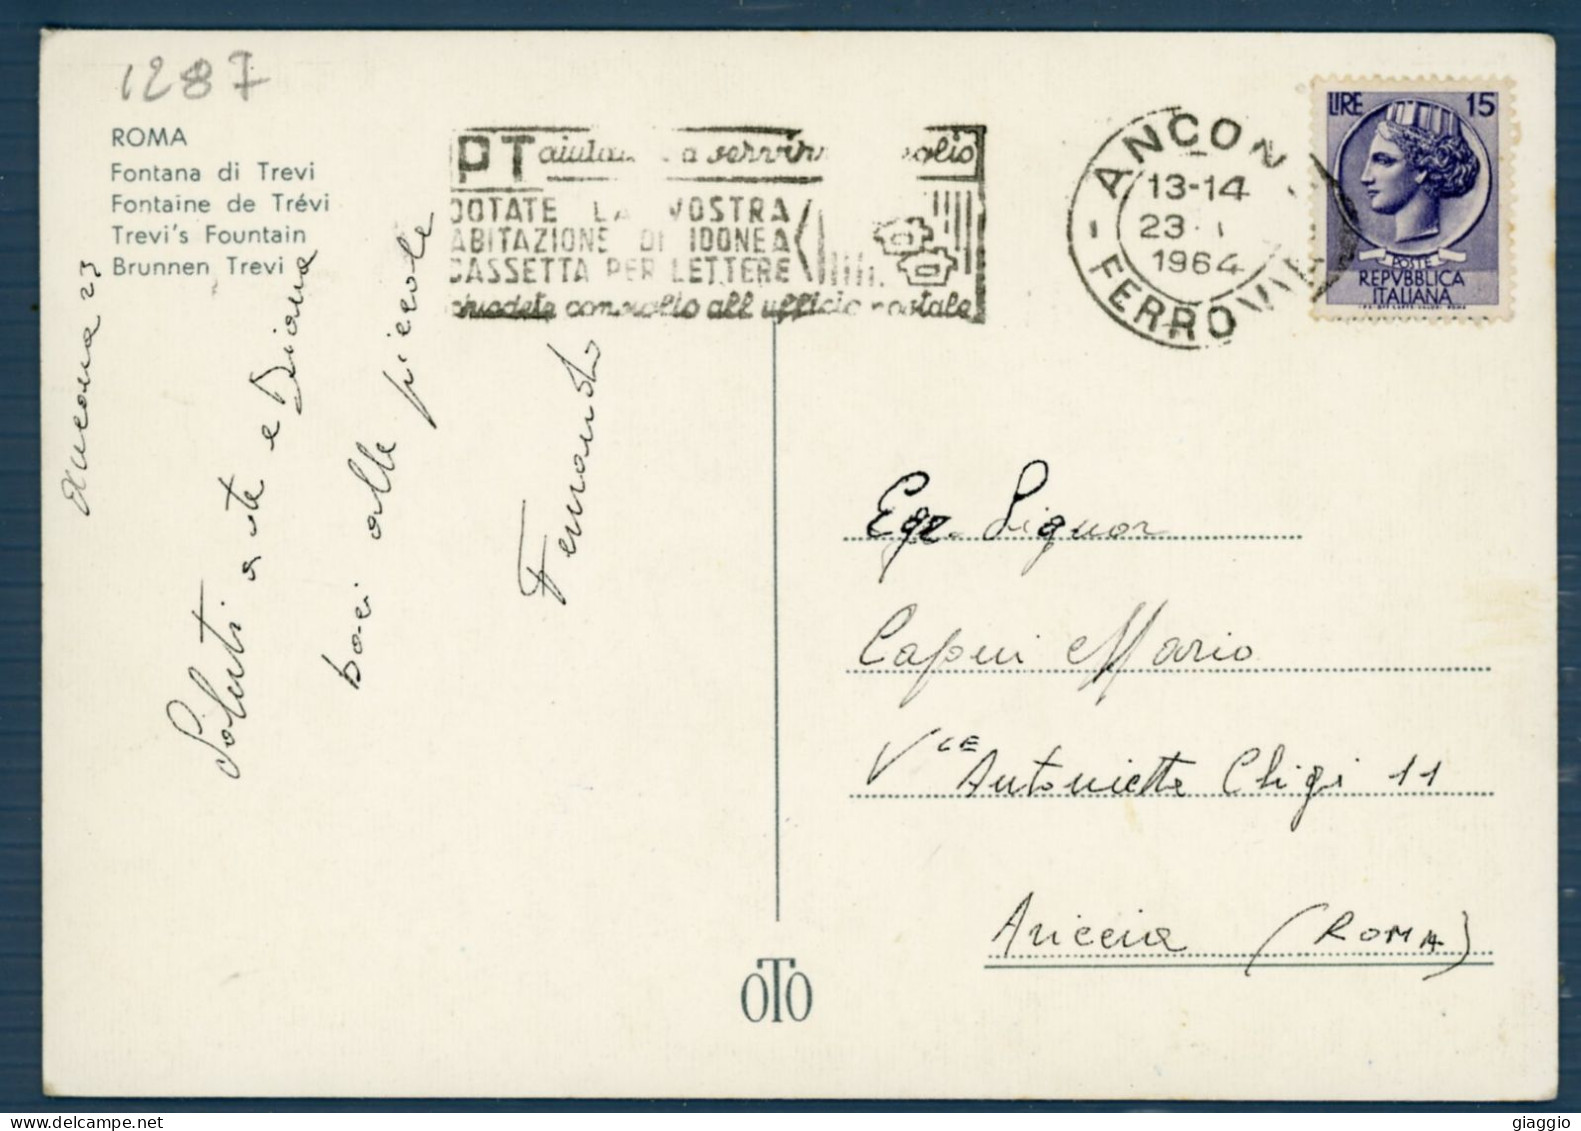 1287
ROMA
Fontana di Trevi
Fontaine de Trévi
Trevi's Fountain
Brunnen Trevi
PT
DOTATE LA VOSTRA
ABITAZIONE DI IDONEA
CASSETTA PER LETTERE
all'ufficio postale
ANCON
13-14
23
1964
- FERROVIA
LIRE 15
POSTE
REPVBBLICA
ITALIANA
Ancona 23
Saluti a te e Diana
baci alle piccole
Fernando
Egr. Signor
Mario
Vle Antonietta Chigi 11
Ariccia (ROMA)
OTO
giaggio